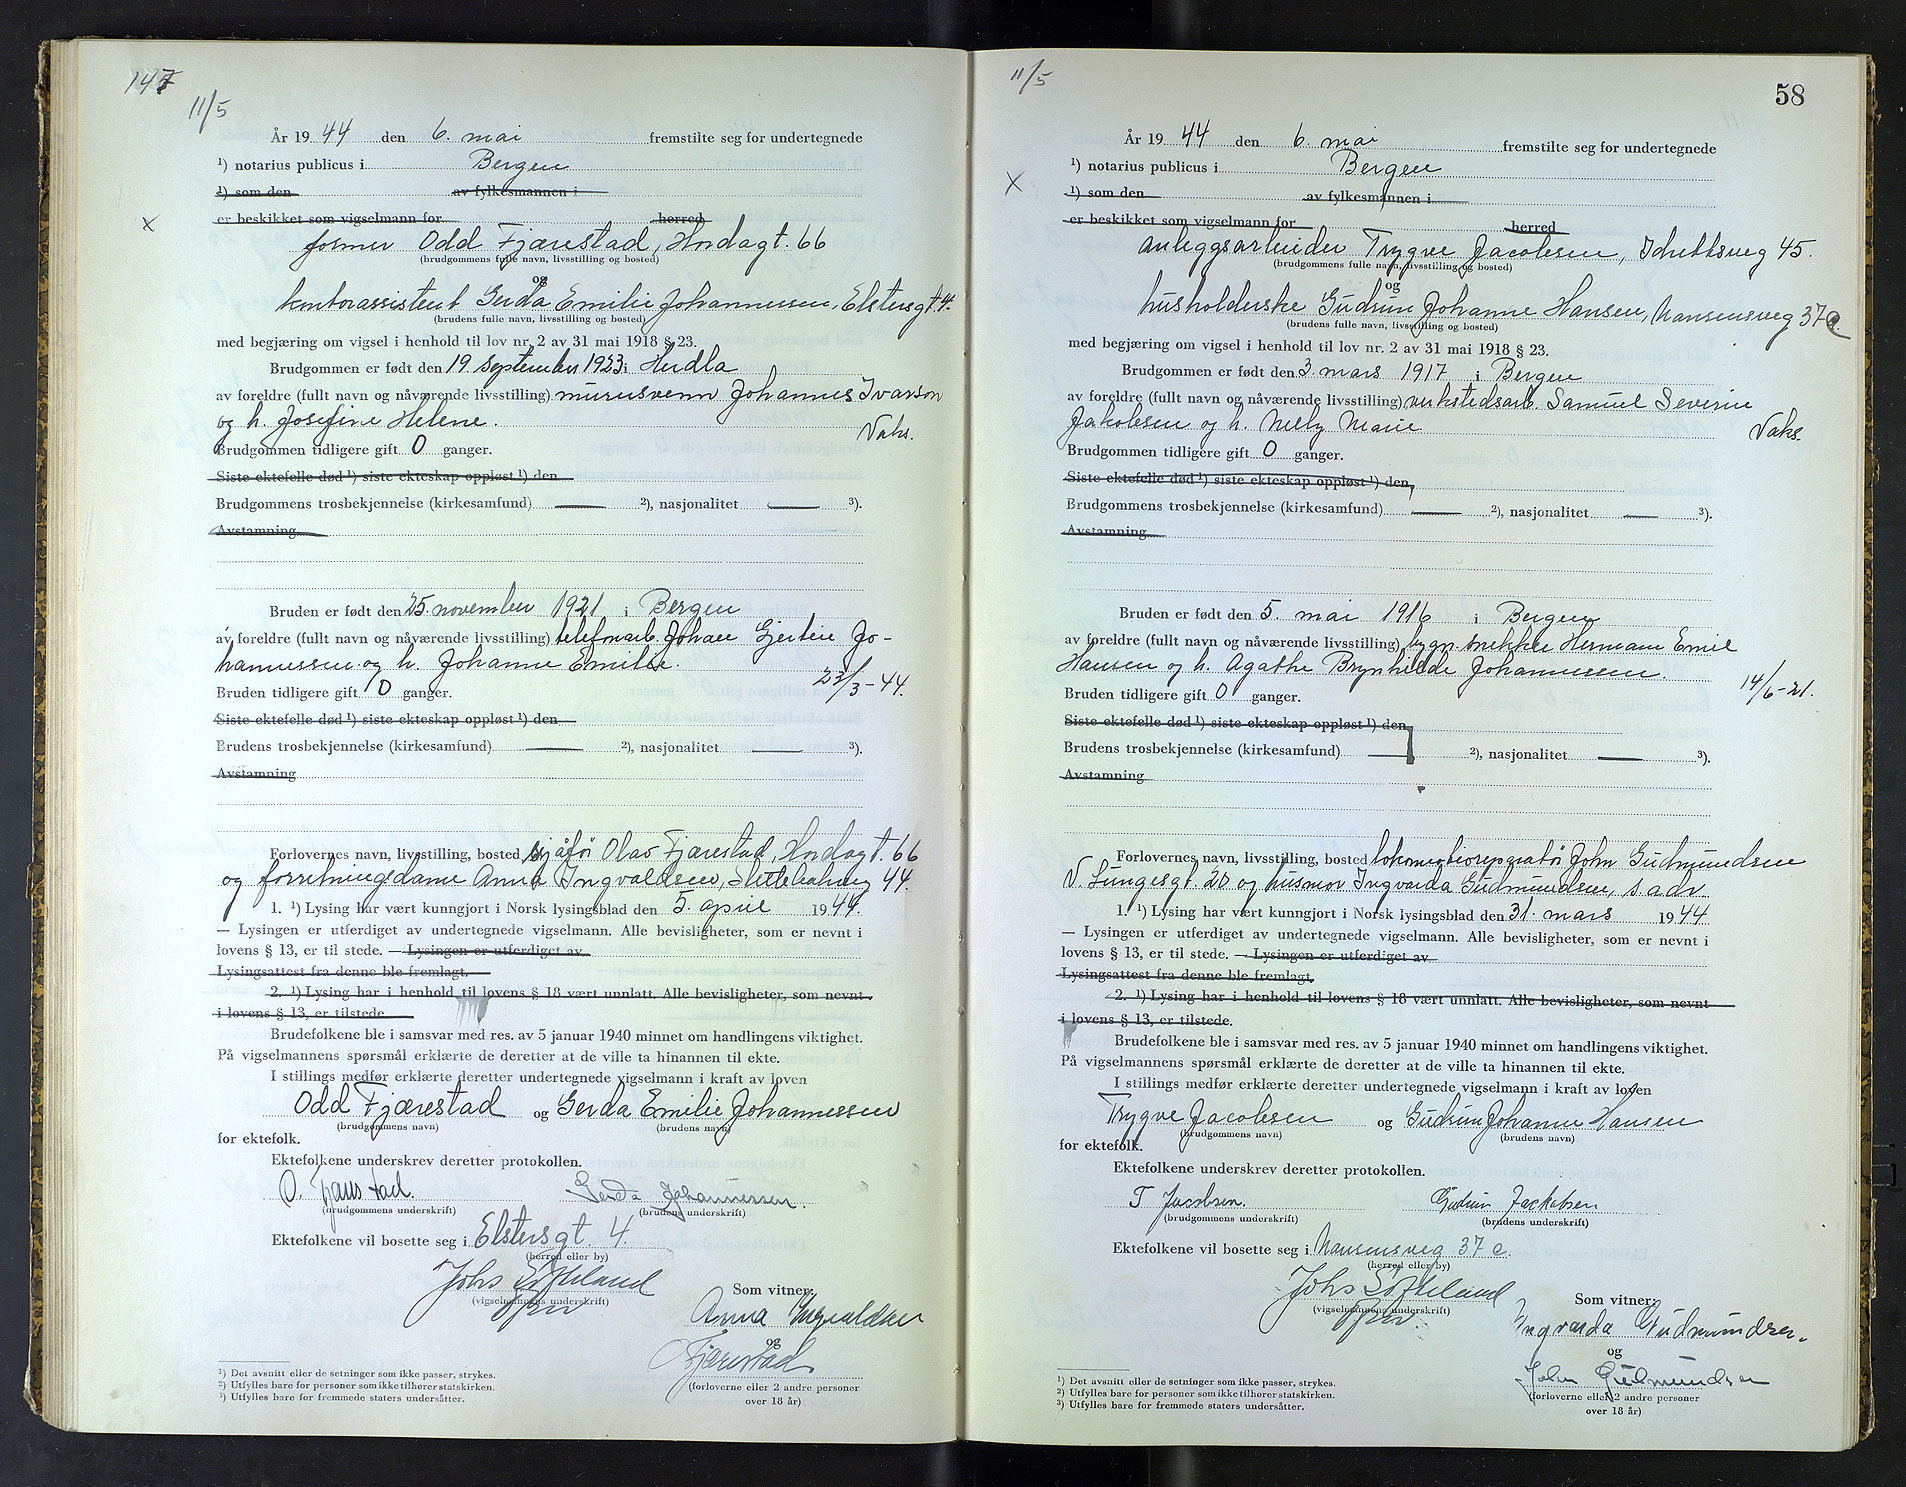 147
11/5
År 19 44 den 6. mai fremstilte seg for undertegnede
¹) notarius publicus i Bergen
¹) som den av fylkesmannen i
er beskikket som vigselmann for herred
x
former Odd Fjærestad, Hordagt. 66
(brudgommens fulle navn, livsstilling og bosted)
og
kontorassistent Gerda Emilie Johannessen, Elstersgt. 4.
(brudens fulle navn, livsstilling og bosted)
med begjæring om vigsel i henhold til lov nr. 2 av 31 mai 1918 § 23.
Brudgommen er født den 19. september 1923 i Herdla
av foreldre (fullt navn og nåværende livsstilling) murersvenn Johannes Ivarson
og h. Josefine Helene.
Vaks.
Brudgommen tidligere gift 0 ganger.
Siste ektefelle død ¹) siste ekteskap oppløst ¹) den
Brudgommens trosbekjennelse (kirkesamfund) — ²), nasjonalitet — ³).
Avstamning
Bruden er født den 25. november 1921 i Bergen
av foreldre (fullt navn og nåværende livsstilling) telefonarb. Johan Gjertin Jo-
hannessen og h. Johanne Emilie.
23/3-44.
Bruden tidligere gift 0 ganger.
Siste ektefelle død ¹) siste ekteskap oppløst ¹) den
Brudens trosbekjennelse (kirkesamfund) — ²), nasjonalitet — ³).
Avstamning
Forlovernes navn, livsstilling, bosted sjåfør Olav Fjærestad, Hordagt. 66
og forretningsdame Anna Ingvaldsen, 44.
1. ¹) Lysing har vært kunngjort i Norsk lysingsblad den 5. april 1944.
— Lysingen er utferdiget av undertegnede vigselmann. Alle bevisligheter, som er nevnt i
lovens § 13, er til stede. — Lysingen er utferdiget av
Lysingsattest fra denne ble fremlagt.
2. ¹) Lysing har i henhold til lovens § 18 vært unnlatt. Alle bevisligheter, som nevnt
i lovens § 13, er tilstede
Brudefolkene ble i samsvar med res. av 5 januar 1940 minnet om handlingens viktighet.
På vigselmannens spørsmål erklærte de deretter at de ville ta hinannen til ekte.
I stillings medfør erklærte deretter undertegnede vigselmann i kraft av loven
Odd Fjærestad og Gerda Emilie Johannessen
(brudgommens navn) (brudens navn)
for ektefolk.
Ektefolkene underskrev deretter protokollen.
O. Fjærestad. Gerda Johannessen.
(brudgommens underskrift) (brudens underskrift)
Ektefolkene vil bosette seg i Elstersgt. 4.
(herred eller by)
Johs Softeland
(vigselmannens underskrift)
Som vitner:
Anna Ingvaldsen
og
Fjærestad
(forloverne eller 2 andre personer
over 18 år)
¹) Det avsnitt eller de setninger som ikke passer, strykes.
²) Utfylles bare for personer som ikke tilhører statskirken.
³) Utfylles bare for fremmede staters undersåtter.
11/5
58
År 19 44 den 6. mai fremstilte seg for undertegnede
¹) notarius publicus i Bergen
x
¹) som den av fylkesmannen i
er beskikket som vigselmann for herred
anleggsarbeider Trygve Jacobsen, Idrettsveg 45.
(brudgommens fulle navn, livsstilling og bosted)
og
husholderske Gudrun Johanne Hansen, Nansensveg 37 c.
(brudens fulle navn, livsstilling og bosted)
med begjæring om vigsel i henhold til lov nr. 2 av 31 mai 1918 § 23.
Brudgommen er født den 3. mars 1917 i Bergen
av foreldre (fullt navn og nåværende livsstilling) verkstedsarb. Samuel Severin
Jakobsen og h. Nelly Marie
Vaks.
Brudgommen tidligere gift 0 ganger.
Siste ektefelle død ¹) siste ekteskap oppløst ¹) den
Brudgommens trosbekjennelse (kirkesamfund) — ²), nasjonalitet — ³).
Avstamning
Bruden er født den 5. mai 1916 i Bergen
av foreldre (fullt navn og nåværende livsstilling) bygn. snekker Hermann Emil
Hansen og h. Agathe Brynhilde Johannessen.
14/6-21.
Bruden tidligere gift 0 ganger.
Siste ektefelle død ¹) siste ekteskap oppløst ¹) den
Brudens trosbekjennelse (kirkesamfund) — ²), nasjonalitet — ³).
Avstamning
Forlovernes navn, livsstilling, bosted lokomotivreparatør John Gudmundsen
V. Lungesgt. 20 og husmor Ingvarda Gudmundsen, s. adr.
1. ¹) Lysing har vært kunngjort i Norsk lysingsblad den 31. mars 1944
— Lysingen er utferdiget av undertegnede vigselmann. Alle bevisligheter, som er nevnt i
lovens § 13, er til stede. — Lysingen er utferdiget av
Lysingsattest fra denne ble fremlagt.
2. ¹) Lysing har i henhold til lovens § 18 vært unnlatt. Alle bevisligheter, som nevnt
i lovens § 13, er tilstede.
Brudefolkene ble i samsvar med res. av 5 januar 1940 minnet om handlingens viktighet.
På vigselmannens spørsmål erklærte de deretter at de ville ta hinannen til ekte.
I stillings medfør erklærte deretter undertegnede vigselmann i kraft av loven
Trygve Jacobsen og Gudrun Johanne Hansen
(brudgommens navn) (brudens navn)
for ektefolk.
Ektefolkene underskrev deretter protokollen.
T Jacobsen. Gudrun Jackobsen
(brudgommens underskrift) (brudens underskrift)
Ektefolkene vil bosette seg i Nansensveg 37 c.
(herred eller by)
Johs Softeland
(vigselmannens underskrift)
Som vitner:
Ingvarda Gudmundsen.
og
John Gudmundsen
(forloverne eller 2 andre personer
over 18 år)
¹) Det avsnitt eller de setninger som ikke passer, strykes.
²) Utfylles bare for personer som ikke tilhører statskirken.
³) Utfylles bare for fremmede staters undersåtter.